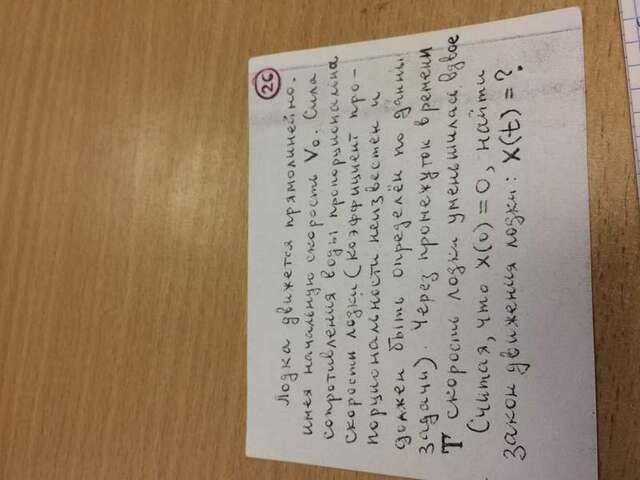 26
Лодка движется прямолинейно,
имея начальную скорость V0. Сила
сопротивления воды пропорциональна
скорости лодки (коэффициент про-
порциональности неизвестен и
должен быть определён по данны
задачи). Через промежуток времени
T скорость лодки уменьшилась вдвое
Считая, что x(0)=0, найти
закон движения лодки: x(t)=?